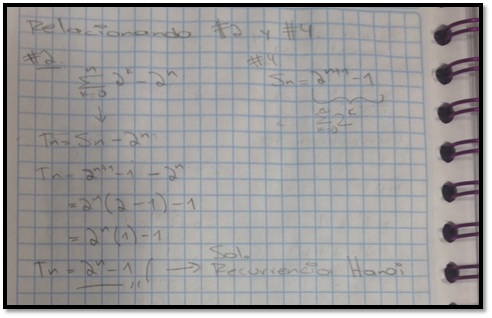 Relacionando #2 y #4
#2.
∑ₖ₌₀ⁿ 2ᵏ - 2ⁿ
↓
Tn = Sn - 2ⁿ
Tn = 2ⁿ⁺¹ - 1 - 2ⁿ
= 2ⁿ(2 - 1) - 1
= 2ⁿ(1) - 1
Tn = 2ⁿ - 1 → Sol. Recurrencia Hanoi
#4
Sn = 2ⁿ⁺¹ - 1